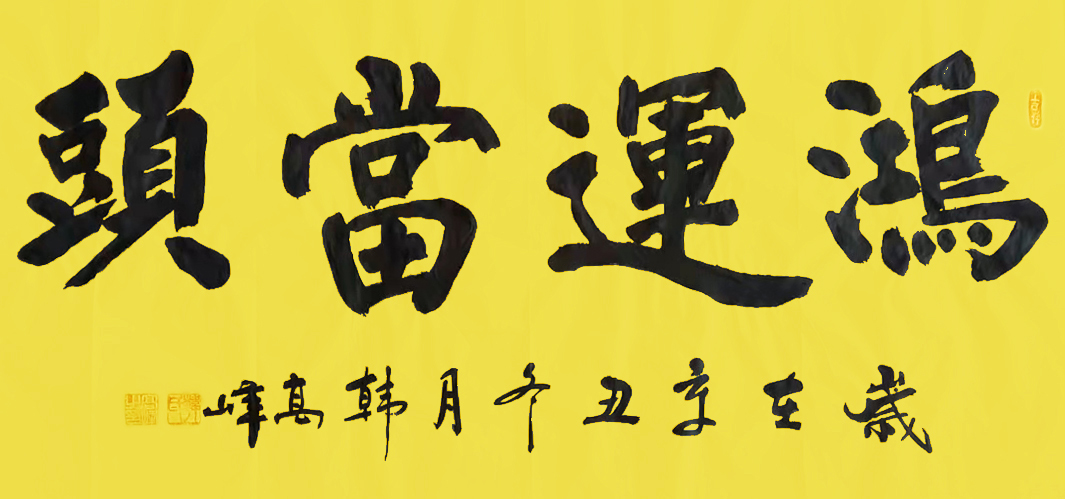 鴻運當頭
歲在辛丑冬月韩高峰